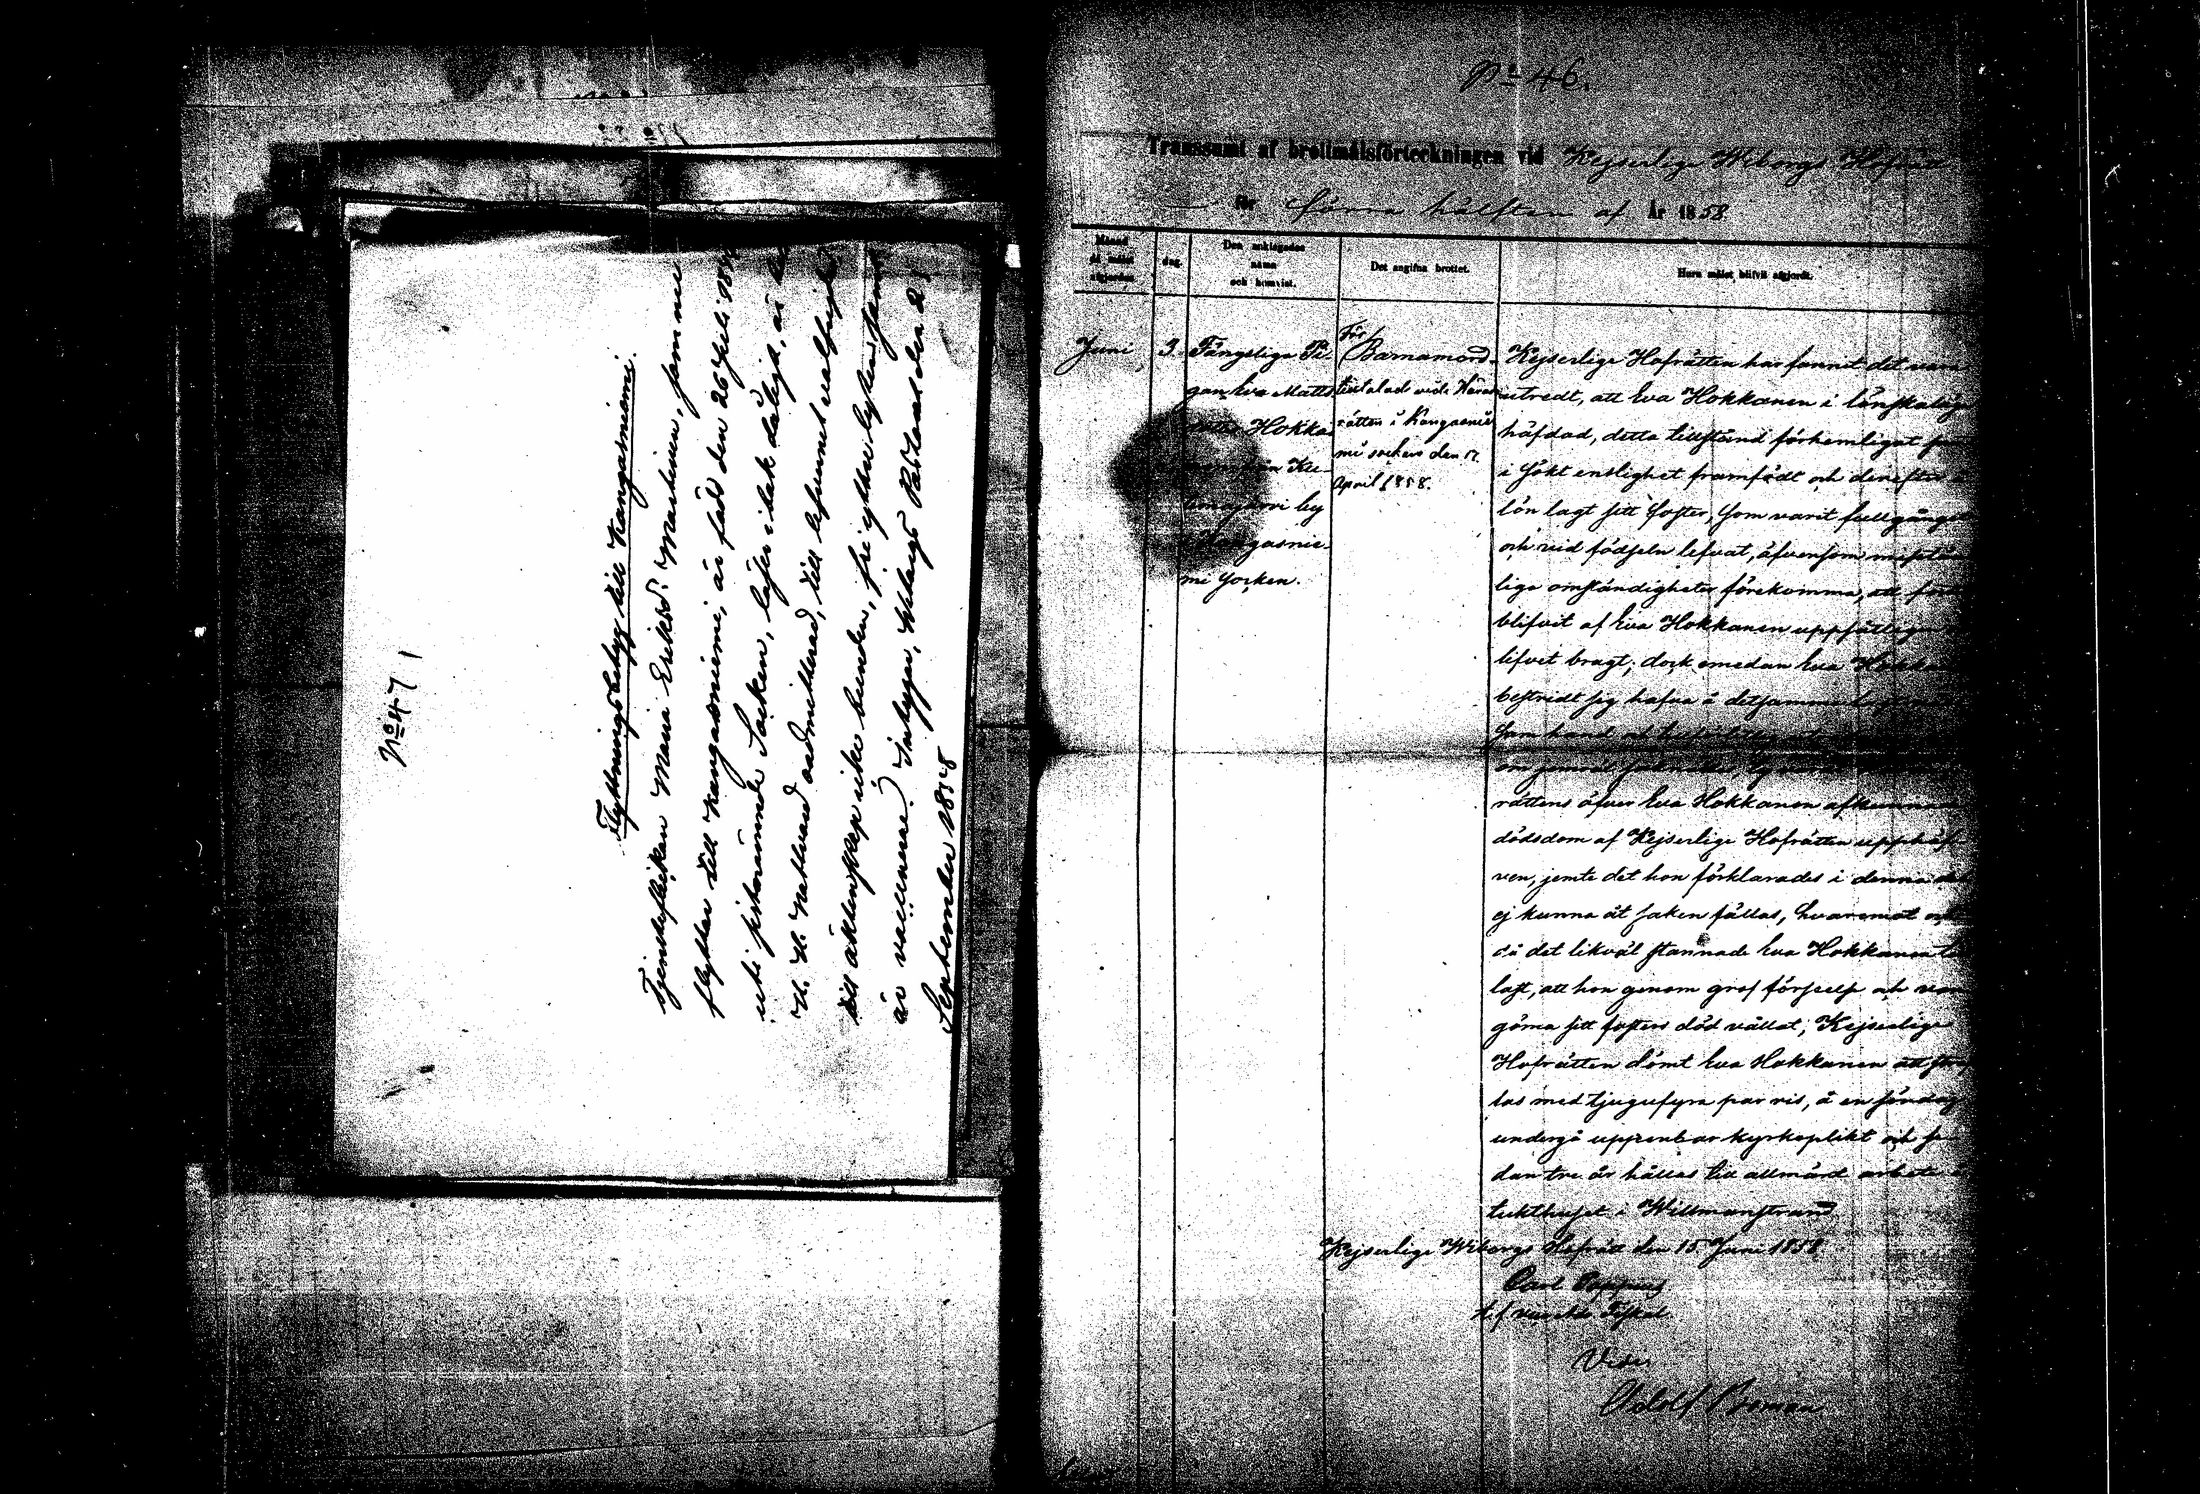 No 47
Flyttningsbetyg till Kangasniemi.
Tjensteflickan Maria Eriksd. Maskinen, som nu
flyttar till Kangasniemi, är född den 26 Juli 18
uti sistnämnde Socken, läser i bok dåligt, är
H. H. Nattvard oadmitterad, till lefvernet välfrejdad
till äktenskap icke bunden, fri ifrån lyten samt
är vaccinerad. Intygar, Wiborgs den 2
September 1858
No 46.
Transsumt af brottmålsförteckningen vid Kejserlige Wiborgs Hofrätt
för förra hälften af År 1858
Månad då målet afgjordes
dag.
Den anklagades namn och hemvist.
Det angifna brottet.
Huru målet blifvit afgjordt.
Juni
3.
Fängsliga Pi-
gan Eva Matts
dotter Hokka
nen från
järvi by
Kangasnie-
mi Socken.
För
Barnamord
tilltalad vid Härads
rätten i Kangasnie
mi sockens den 17
April 1858.
Kejserlige Hofrätten har funnit det vara
utredt, att Eva Hokkanen i lönskaläge
häfdad, detta tillstånd förhemligat
i sökt enslighet framfödt och derefter å
lön lagt sitt foster, som varit fullgånget
och vid födseln lefvat, äfvensom
liga omständigheter förekomma, att
blifvit af Eva Hokkanen uppsåtligen
lifvet bragt; dock emedan Eva Hokkanen
bestridt sig hafva å detsamma
rättens öfver Eva Hokkanen afkunnade
dödsdom af Kejserlige Hofrätten upphäf-
ven, jemte det hon förklarades i denna del
ej kunna åt saken fällas, hvaremot och
då det likväl stannade Eva Hokkanen till
last, att hon genom grof förseelse och van
göma sitt fosters död vållat, Kejserlige
Hofrätten dömt Eva Hokkanen att straf
fas med tjugufyra par ris, å en söndag
undergå uppenbar kyrkoplikt och se
dan tre år hållas till allmänt arbete å
tukthuset i Willmanstrand
Kejserlige Wiborgs Hofrätt den 15 Juni 1858
Carl
Vidi
Adolf Boman